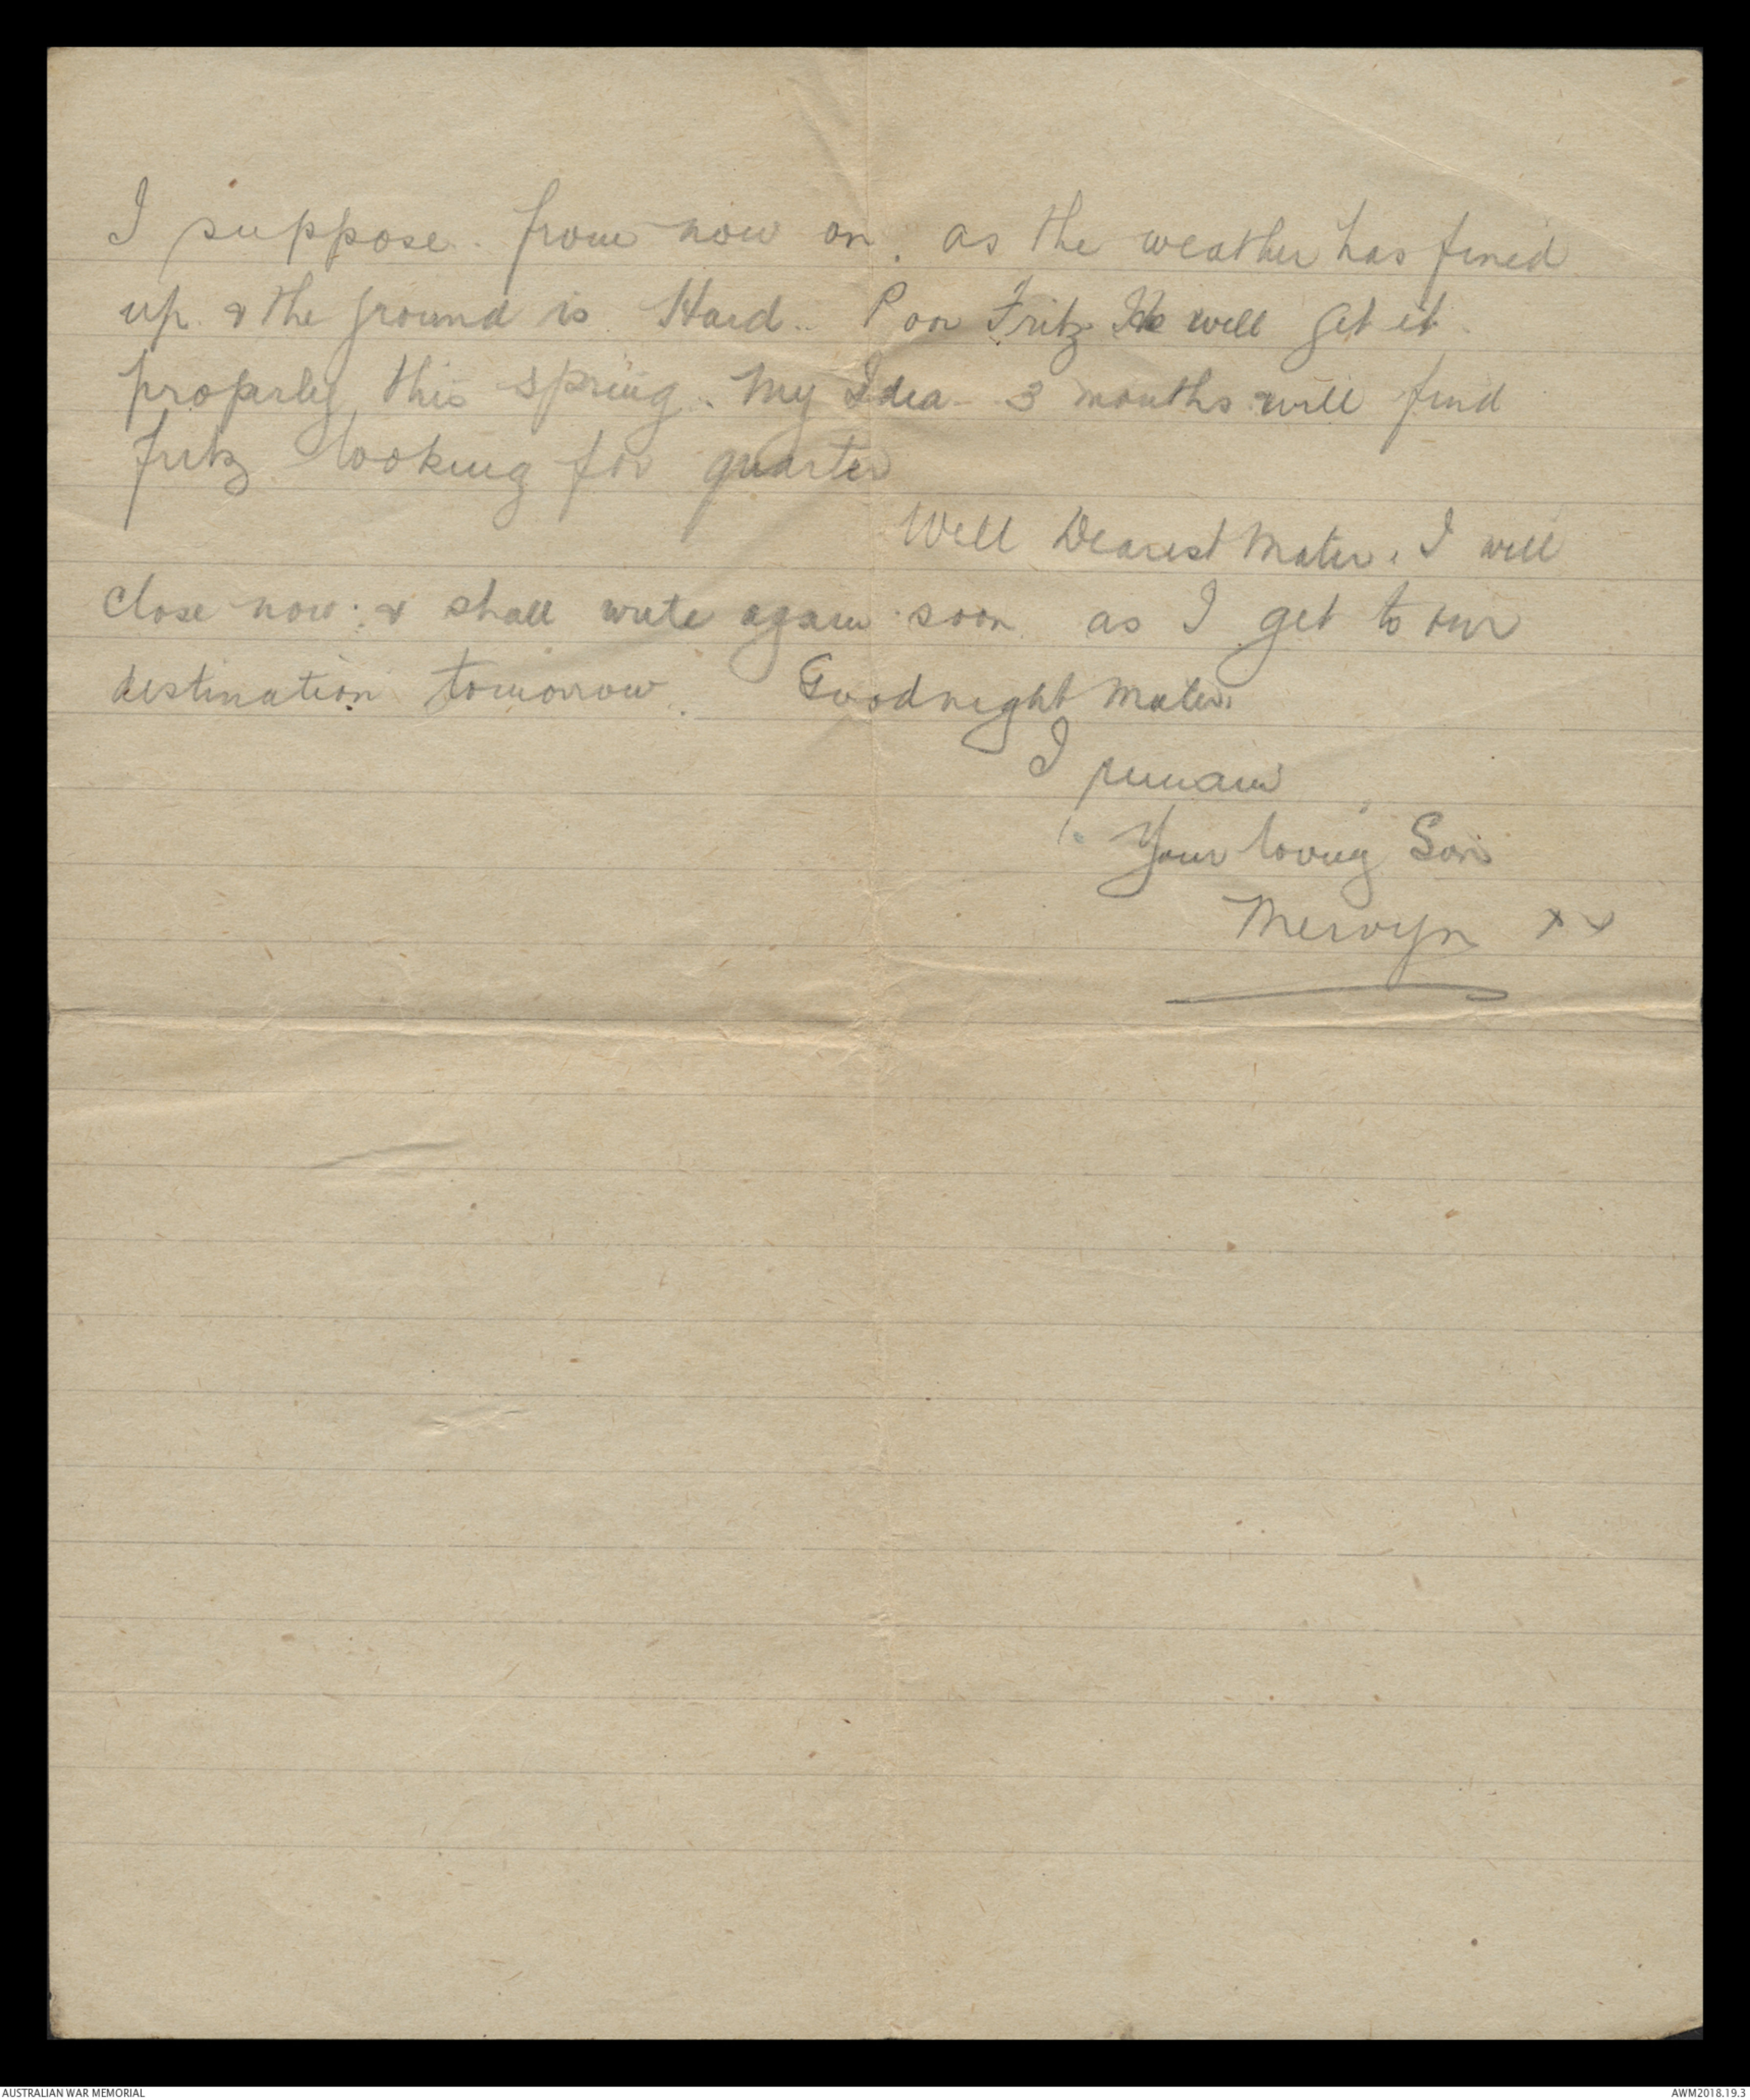 I suppose. from now on. as the weather has fined
up. & the ground is. Hard.. Poor Fritz He will get it.
properly this spring. My Idea - 3 months will find
fritz looking for quarter
Well Dearest Mater. I will
close now: & shall write again soon as I get to our
destination tomorrow. Goodnight Mater.
I remain
Your loving Son
Mervyn xx
AUSTRALIAN WAR MEMORIAL
AWM2018.19.3